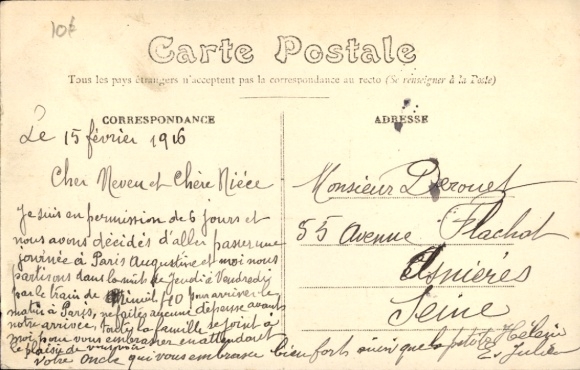 10f
Carte Postale
Tous les pays étrangers n'acceptent pas la correspondance au recto (Se renseigner à la Poste)
CORRESPONDANCE
Le 15 février 1916
Cher Neveu et Chère Nièce
Je suis en permission de 6 jours et
nous avons décidés d'aller passer une
journée à Paris Augustine et moi nous
partisons dans la nuit de Jeudi à Vendredi
par le train de minuit 40 pour arriver le
matin à Paris, ne faite aucune dépense avant
notre arrivée, toute la famille se joint à
moi pour vous embrasser en attendant
le plaisir de vous voir
votre oncle qui vous embrasse bien forts ainsi que la petite Hélène
Julien
ADRESSE
Monsieur Derouet
55 Avenue Flachat
Asnières
Seine